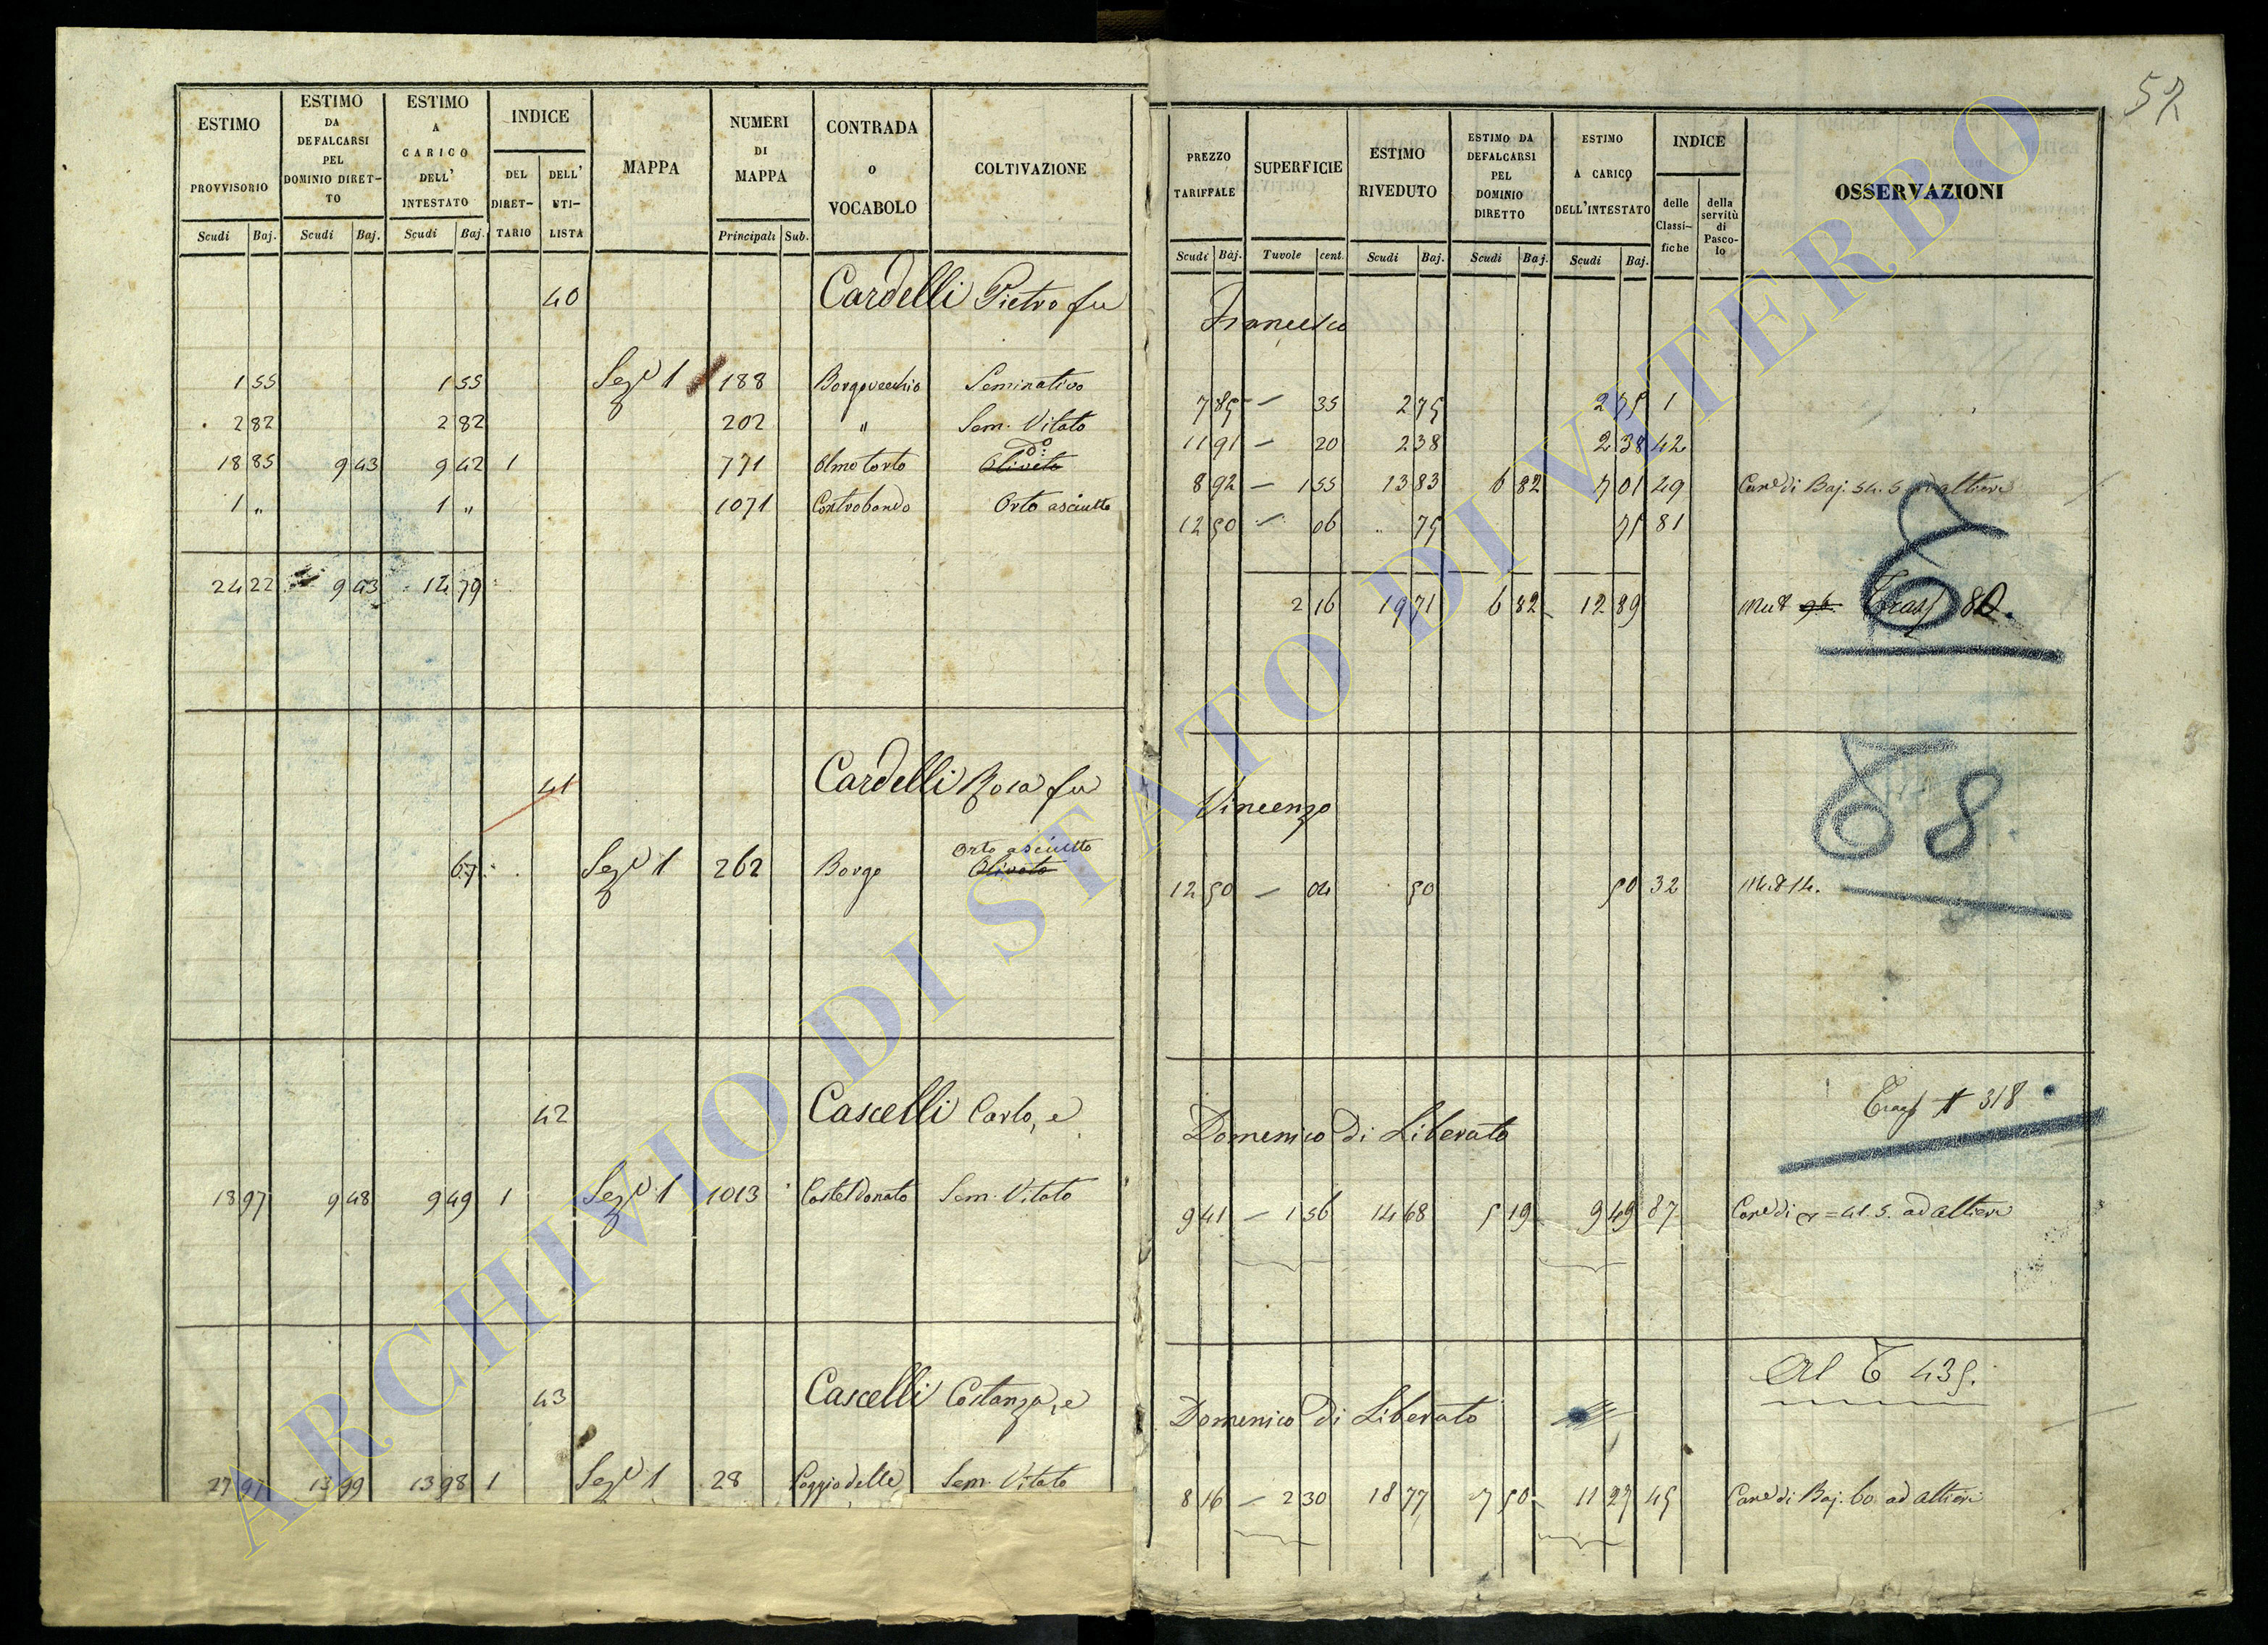 52
ESTIMO PROVVISORIO Scudi Baj.
ESTIMO DA DEFALCARSI PEL DOMINIO DIRETTO Scudi Baj.
ESTIMO A CARICO DELL' INTESTATO Scudi Baj.
INDICE DEL DIRETTARIO DELL' UTILISTA
MAPPA
NUMERI DI MAPPA Principali Sub.
CONTRADA o VOCABOLO
COLTIVAZIONE
PREZZO TARIFFALE Scudi Baj.
SUPERFICIE Tavole cent.
ESTIMO RIVEDUTO Scudi Baj.
ESTIMO DA DEFALCARSI PEL DOMINIO DIRETTO Scudi Baj.
ESTIMO A CARICO DELL'INTESTATO Scudi Baj.
INDICE delle Classifiche della servitù di Pascolo
OSSERVAZIONI
40 Cardelli Pietro fu Francesco
1 55 1 55 Sez.e 1 188 Borgovecchio Seminativo 7 85 — 35 2 75 2 75 1
2 82 2 82 202 " Sem. Vitato 11 91 — 20 2 38 2 38 42
18 85 9 43 9 42 1 771 Olmo torto Oliveto d.o 8 92 — 1 55 13 83 6 82 7 01 49 Can.e di Baj. 54.5 ad Altieri
1 " 1 " 1071 Contrabando Orto asciutto 12 50 — 06 75 75 81
24 22 9 43 14 79 2 16 19 71 6 82 12 89 96. Trasp 82.
41 Cardelli Rosa fu Vincenzo
68
67 Sez.e 1 262 Borgo Oliveto Orto asciutto 12 50 — 04 50 50 32 14.
42 Cascelli Carlo, e Domenico di Liberato
Trasp 318
18 97 9 48 9 49 1 Sez.e 1 1013 Casteldonato Sem. Vitato 9 41 — 1 56 14 68 5 19 9 49 87 Can.e di 41.5. ad Altieri
43 Cascelli Costanza, e Domenico di Liberato
Al T 435.
27 97 13 99 13 98 1 Sez.e 1 28 Poggio delle Sem. Vitato 8 16 — 2 30 18 77 7 50 11 27 45 Can.e di Baj. 60 ad Altieri
ARCHIVIO DI STATO DI VITERBO